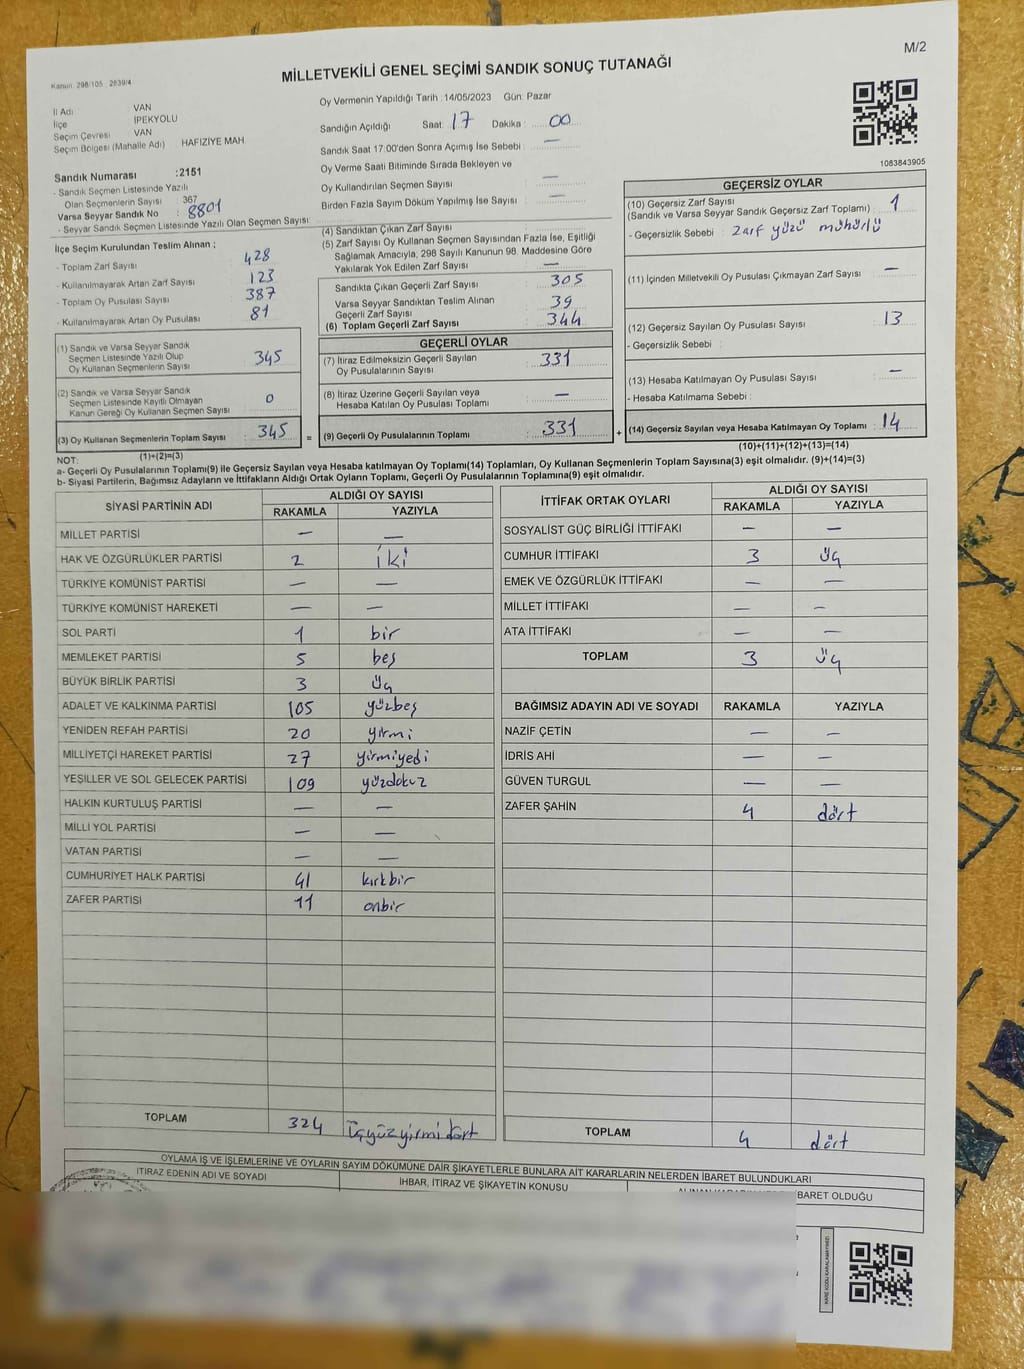 M/2
Kanun: 298/105 , 2839/4
MİLLETVEKİLİ GENEL SEÇİMİ SANDIK SONUÇ TUTANAĞI
İl Adı VAN
İlçe İPEKYOLU
Seçim Çevresi VAN
Seçim Bölgesi (Mahalle Adı) HAFIZİYE MAH
Sandık Numarası :2151
- Sandık Seçmen Listesinde Yazılı
Olan Seçmenlerin Sayısı 367
Varsa Seyyar Sandık No : 8801
- Seyyar Sandık Seçmen Listesinde Yazılı Olan Seçmen Sayısı
Oy Vermenin Yapıldığı Tarih :14/05/2023 Gün: Pazar
Sandığın Açıldığı Saat: 17 Dakika : 00
Sandık Saat 17:00'den Sonra Açımış İse Sebebi : —
Oy Verme Saati Bitiminde Sırada Bekleyen ve
Oy Kullandırılan Seçmen Sayısı —
Birden Fazla Sayım Döküm Yapılmış İse Sayısı —
1083843905
İlçe Seçim Kurulundan Teslim Alınan ;
- Toplam Zarf Sayısı 428
- Kullanılmayarak Artan Zarf Sayısı 123
- Toplam Oy Pusulası Sayısı 387
- Kullanılmayarak Artan Oy Pusulası 81
(1) Sandık ve Varsa Seyyar Sandık
Seçmen Listesinde Yazılı Olup
Oy Kullanan Seçmenlerin Sayısı 345
(2) Sandık ve Varsa Seyyar Sandık
Seçmen Listesinde Kayıtlı Olmayan
Kanun Gereği Oy Kullanan Seçmen Sayısı 0
(3) Oy Kullanan Seçmenlerin Toplam Sayısı 345 =
(1)+(2)=(3)
(4) Sandıktan Çıkan Zarf Sayısı
(5) Zarf Sayısı Oy Kullanan Seçmen Sayısından Fazla İse, Eşitliği
Sağlamak Amacıyla; 298 Sayılı Kanunun 98. Maddesine Göre
Yakılarak Yok Edilen Zarf Sayısı —
Sandıkta Çıkan Geçerli Zarf Sayısı 305
Varsa Seyyar Sandıktan Teslim Alınan
Geçerli Zarf Sayısı 39
(6) Toplam Geçerli Zarf Sayısı 344
GEÇERLİ OYLAR
(7) İtiraz Edilmeksizin Geçerli Sayılan
Oy Pusulalarının Sayısı 331
(8) İtiraz Üzerine Geçerli Sayılan veya
Hesaba Katılan Oy Pusulası Toplamı —
(9) Geçerli Oy Pusulalarının Toplamı 331 +
GEÇERSİZ OYLAR
(10) Geçersiz Zarf Sayısı
(Sandık ve Varsa Seyyar Sandık Geçersiz Zarf Toplamı) : 1
- Geçersizlik Sebebi : Zarf yüzü mühürlü
(11) İçinden Milletvekili Oy Pusulası Çıkmayan Zarf Sayısı —
(12) Geçersiz Sayılan Oy Pusulası Sayısı 13
- Geçersizlik Sebebi :
(13) Hesaba Katılmayan Oy Pusulası Sayısı —
- Hesaba Katılmama Sebebi :
(14) Geçersiz Sayılan veya Hesaba Katılmayan Oy Toplamı : 14
(10)+(11)+(12)+(13)=(14)
NOT:
a- Geçerli Oy Pusulalarının Toplamı(9) ile Geçersiz Sayılan veya Hesaba katılmayan Oy Toplamı(14) Toplamları, Oy Kullanan Seçmenlerin Toplam Sayısına(3) eşit olmalıdır. (9)+(14)=(3)
b- Siyasi Partilerin, Bağımsız Adayların ve İttifakların Aldığı Ortak Oyların Toplamı, Geçerli Oy Pusulalarının Toplamına(9) eşit olmalıdır.
SİYASİ PARTİNİN ADI ALDIĞI OY SAYISI
RAKAMLA YAZIYLA
MİLLET PARTİSİ — —
HAK VE ÖZGÜRLÜKLER PARTİSİ 2 iki
TÜRKİYE KOMÜNİST PARTİSİ — —
TÜRKİYE KOMÜNİST HAREKETİ — —
SOL PARTİ 1 bir
MEMLEKET PARTİSİ 5 beş
BÜYÜK BİRLİK PARTİSİ 3 üç
ADALET VE KALKINMA PARTİSİ 105 yüzbeş
YENİDEN REFAH PARTİSİ 20 yirmi
MİLLİYETÇİ HAREKET PARTİSİ 27 yirmiyedi
YEŞİLLER VE SOL GELECEK PARTİSİ 109 yüzdokuz
HALKIN KURTULUŞ PARTİSİ — —
MİLLİ YOL PARTİSİ — —
VATAN PARTİSİ — —
CUMHURİYET HALK PARTİSİ 41 kırkbir
ZAFER PARTİSİ 11 onbir
TOPLAM 324 üçyüzyirmi dört
İTTİFAK ORTAK OYLARI ALDIĞI OY SAYISI
RAKAMLA YAZIYLA
SOSYALİST GÜÇ BİRLİĞİ İTTİFAKI — —
CUMHUR İTTİFAKI 3 üç
EMEK VE ÖZGÜRLÜK İTTİFAKI — —
MİLLET İTTİFAKI — —
ATA İTTİFAKI — —
TOPLAM 3 üç
BAĞIMSIZ ADAYIN ADI VE SOYADI RAKAMLA YAZIYLA
NAZİF ÇETİN — —
İDRİS AHİ — —
GÜVEN TURGUL — —
ZAFER ŞAHİN 4 dört
TOPLAM 4 dört
OYLAMA İŞ VE İŞLEMLERİNE VE OYLARIN SAYIM DÖKÜMÜNE DAİR ŞİKAYETLERLE BUNLARA AİT KARARLARIN NELERDEN İBARET BULUNDUKLARI
İTİRAZ EDENİN ADI VE SOYADI İHBAR, İTİRAZ VE ŞİKAYETİN KONUSU ALINAN KARARIN NEDEN İBARET OLDUĞU
KARE KODU KARALAMAYINIZ!